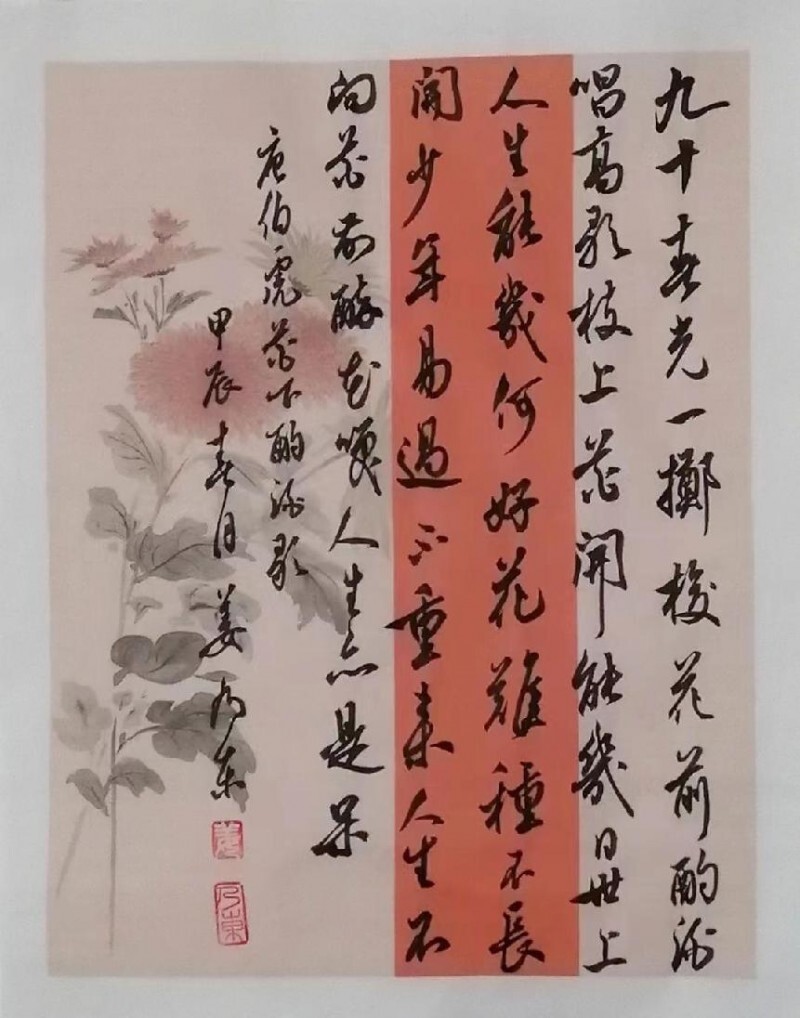 九十春光一擲梭花前酌酒
唱高歌枝上花開能幾日世上
人生能幾何好花難種不長
開少年易過不重來人生不
向花前醉花咲人生亦是呆
唐伯虎花下酌酒歌
甲辰春月姜乃東
姜
乃東